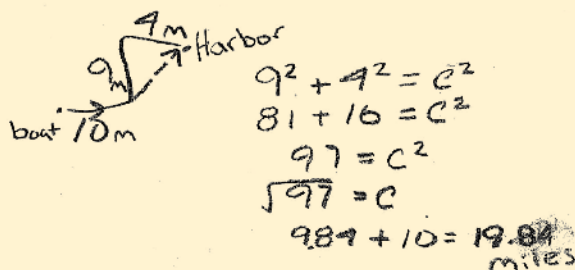 4m
Harbor
9m
boat 10m
9² + 4² = C²
81 + 16 = C²
97 = C²
√97 = C
9.84 + 10 = 19.84
miles